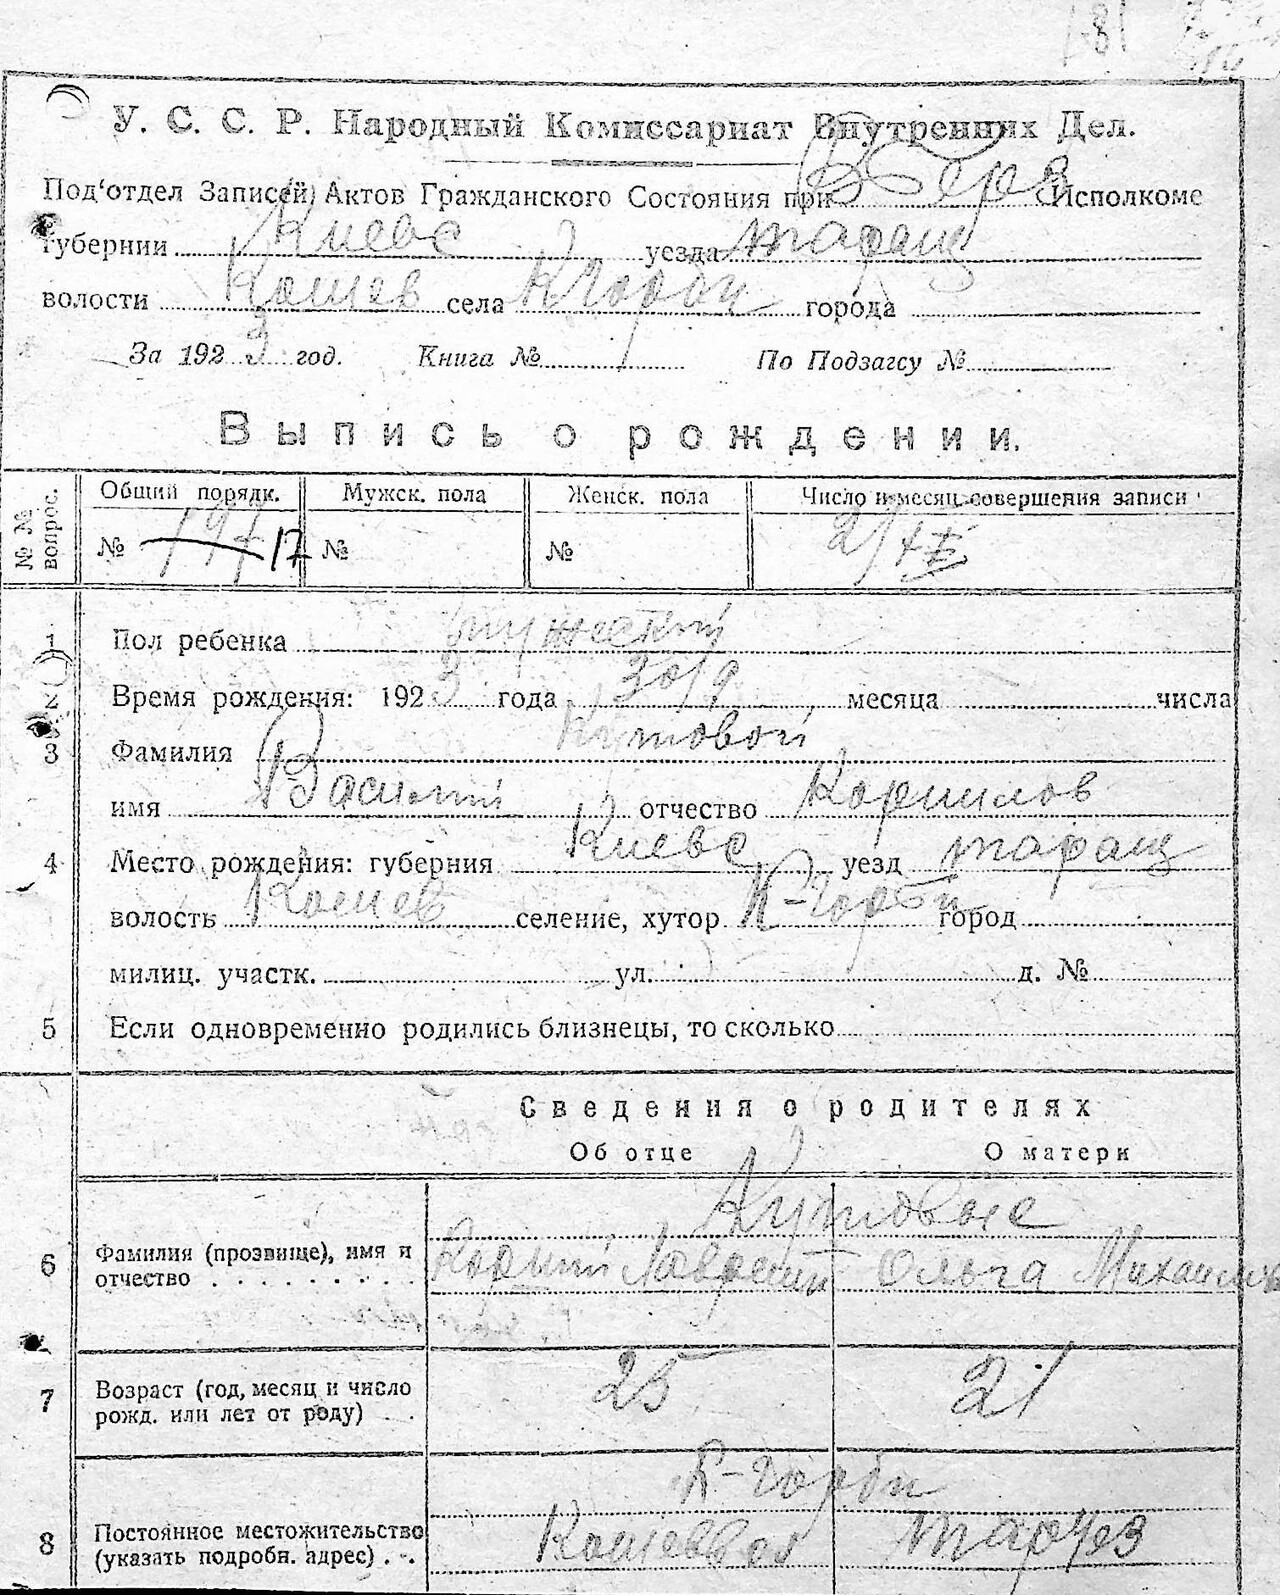 У. С. С. Р. Народный Комиссариат Внутренних Дел.
Под'отдел Записей Актов Гражданского Состояния при Исполкоме
губернии Киевс уезда таращ
волости Кошев села К Горби города
За 1923 год. Книга № По Подзагсу №
Выпись о рождении.
№№ вопрос. Общий порядк. Мужск. пола Женск. пола Число и месяц совершения записи
№ 197 17 № № 2/XI
1 Пол ребенка мужеский
2 Время рождения: 1923 года 30/9 месяца числа
3 Фамилия Кутовой
имя Василий отчество Корнилов
4 Место рождения: губерния Киевс уезд таращ
волость Кошев селение, хутор К-Горби город
милиц. участк. ул. д. №
5 Если одновременно родились близнецы, то сколько
Сведения о родителях
Об отце О матери
Кутовые
6 Фамилия (прозвище), имя и
отчество Лаврентий Ольга Михайлов
7 Возраст (год, месяц и число 25 21
рожд. или лет от роду)
К-Горби
8 Постоянное местожительство
(указать подробн. адрес)